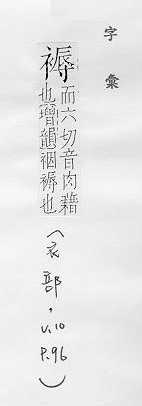 字彙
褥
而六切音肉藉
也增韻裀褥也
(衣部,
V.10
P.96
)